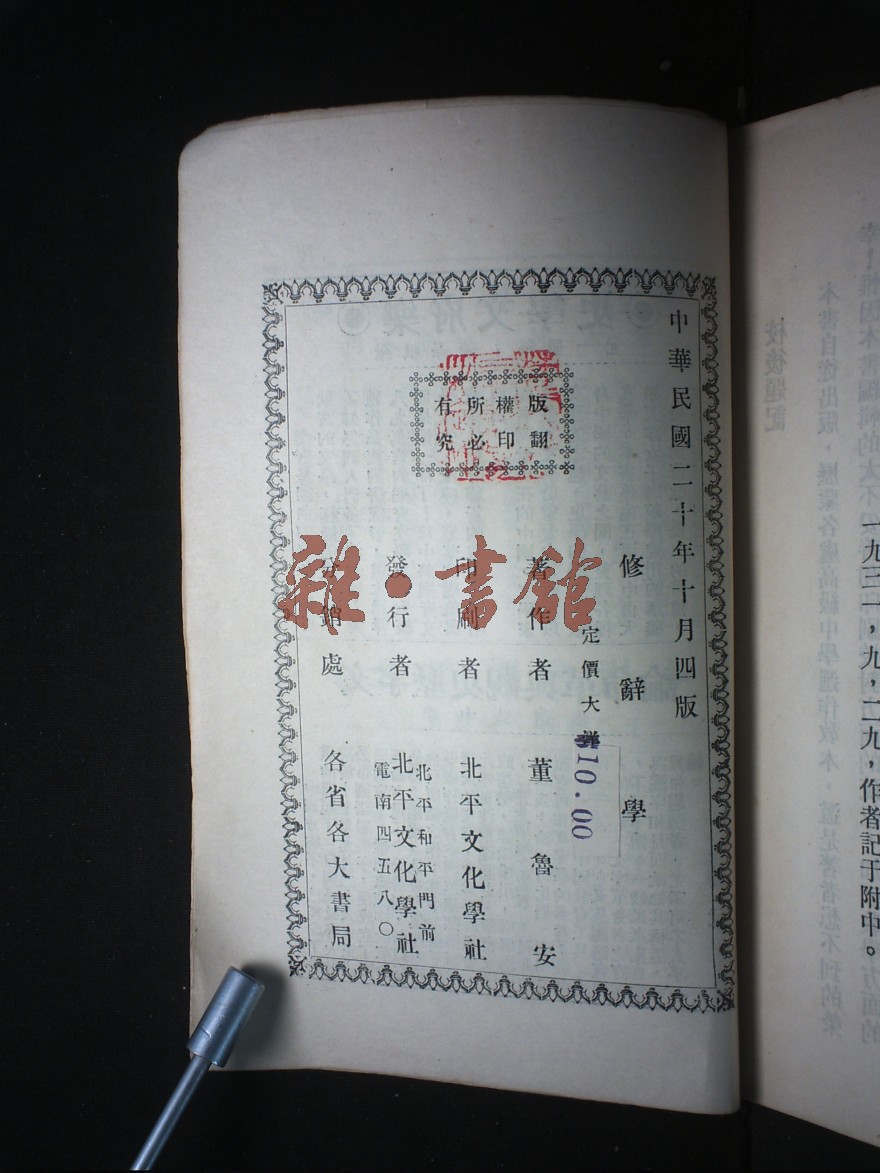 一九三一，九，二九，作者記于附中。
中華民國二十年十月四版
修辭學
定價大洋
10.00
版權所有
翻印必究
著作者 董魯安
印刷者 北平文化學社
發行者 北平文化學社
北平和平門前
電南四五八〇
分銷處 各省各大書局
雜·書館